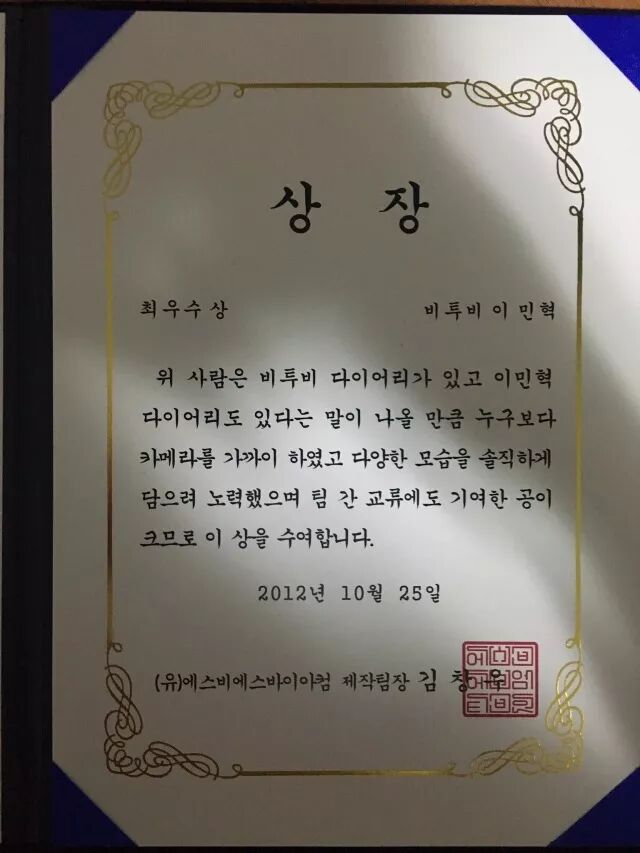 상 장
최우수상 비투비 이민혁
위 사람은 비투비 다이어리가 있고 이민혁
다이어리도 있다는 말이 나올 만큼 누구보다
카메라를 가까이 하였고 다양한 모습을 솔직하게
담으려 노력했으며 팀 간 교류에도 기여한 공이
크므로 이 상을 수여합니다.
2012년 10월 25일
(유)에스비에스바이아컴 제작팀장 김창우